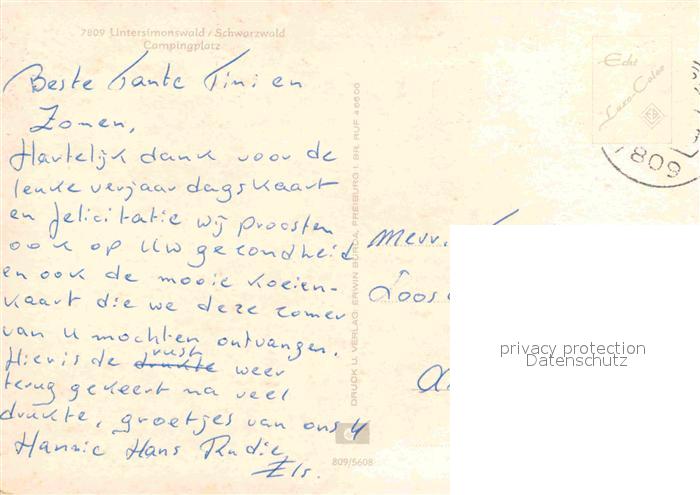 7809 Untersimonswald / Schwarzwald
Campingplatz
Beste Tante Tini en
Zonen,
Hartelijk dank voor de
leuke verjaardagskaart
en felicitatie wij proosten
ook op Uw gezondheid
en ook de mooie koeien-
kaart die we deze zomer
van U mochten ontvangen.
Hier is de drukte rust weer
terug gekeert na veel
drukte, groetjes van ons 4
Hannie Hans Rudie
Els.
DRUCK U. VERLAG: ERWIN BURDA, FREIBURG I. BR. RUF 46606
809/5608
Echt
Luxo-Color
7809
Mevr.
privacy protection
Datenschutz